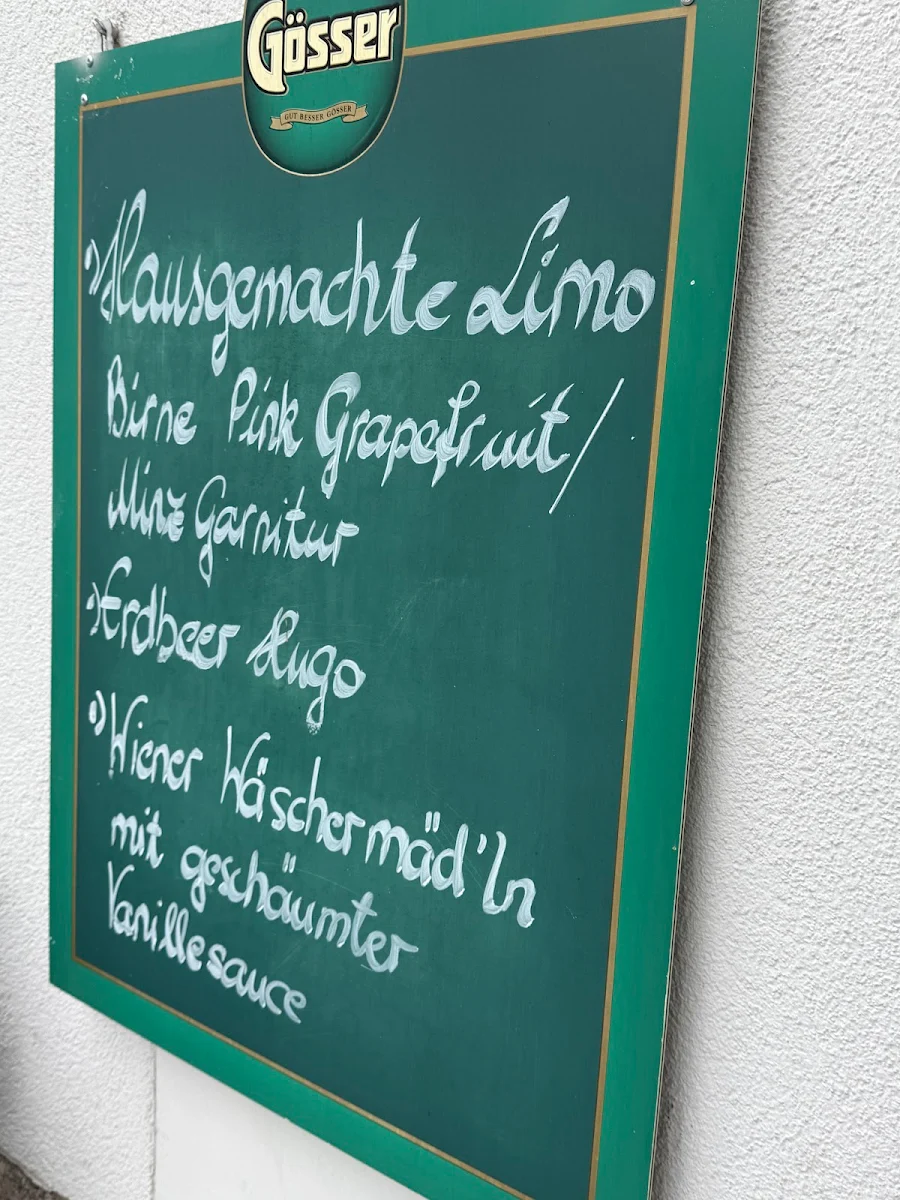 Gösser
GUT BESSER GÖSSER
•) Hausgemachte Limo
Birne Pink Grapefruit /
Minz Garnitur
•) Erdbeer Hugo
•) Wiener Wäschermäd'ln
mit geschäumter
Vanillesauce